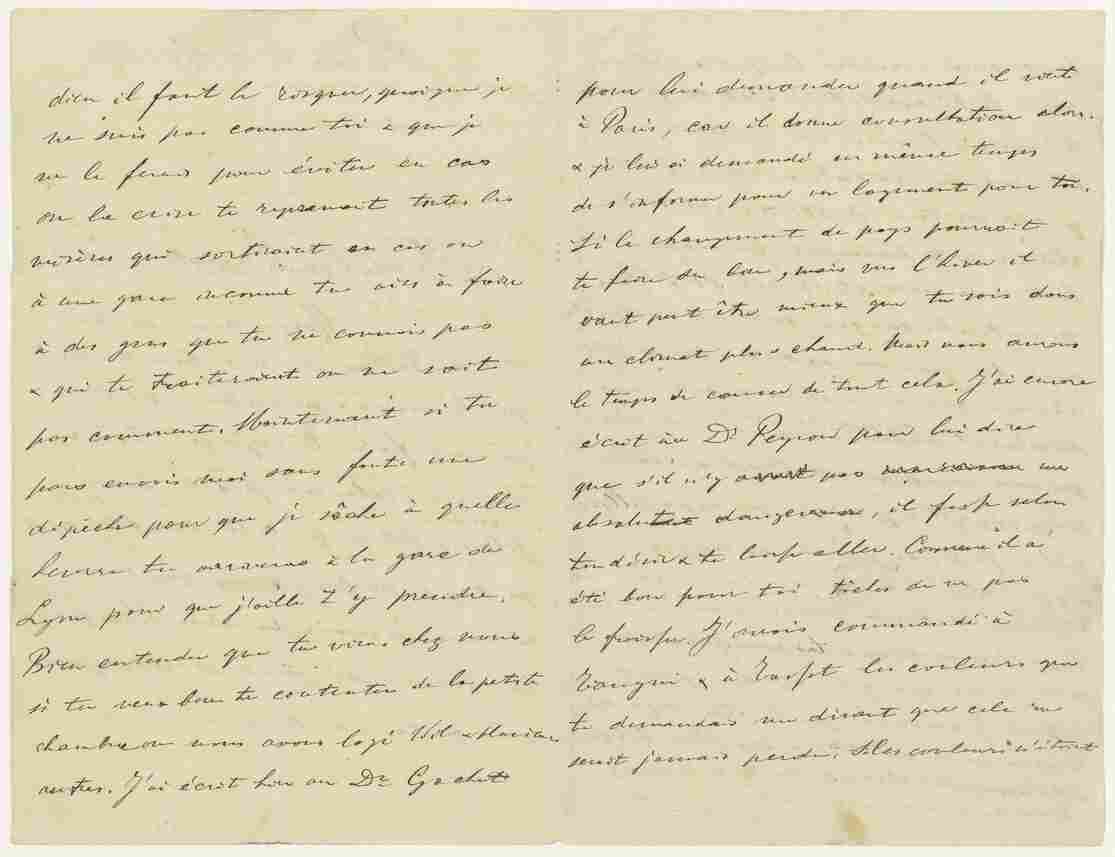 dieu il faut le risquer, quoique je
ne suis pas comme toi & que je
ne le ferais pour éviter en cas
ou la crise te reprenait toutes les
misères qui sortiraient en cas ou
à une gare inconnue tu aies à faire
à des gens que tu ne connais pas
& qui te traiteraient on ne sait
pas comment. Maintenant si tu
pars envois moi sans faute une
dépeche pour que je sâche à quelle
heure tu arriveras à la gare de
Lyon pour que j'aille t'y prendre.
Bien entendu que tu viens chez nous
si tu veux bien te contenter de la petite
chambre ou nous avons logé Wil &
autres. J'ai écrit hier au Dr Gachet
pour lui demander quand il vient
à Paris, car il donne consultation alors.
& je lui ai demandé en même temps
de s'informer pour un logement pour toi.
Si le changement de pays pourrait
te faire du bien, mais vers l'hiver il
vaut peut être mieux que tu sois dans
un climat plus chaud. Mais nous aurons
le temps de causer de tout cela. J'ai encore
écrit au Dr Peyron pour lui dire
que s'il n'y a pas un
absolu danger, il fasse selon
ton désir & te laisse aller. Comme il a
été bon pour toi tâches de ne pas
le froisser. J'avais commandé à
Tanguy & à Tasset les couleurs que
tu demandais me disant que cela ne
serait jamais perdu. Si les couleurs n'étaient